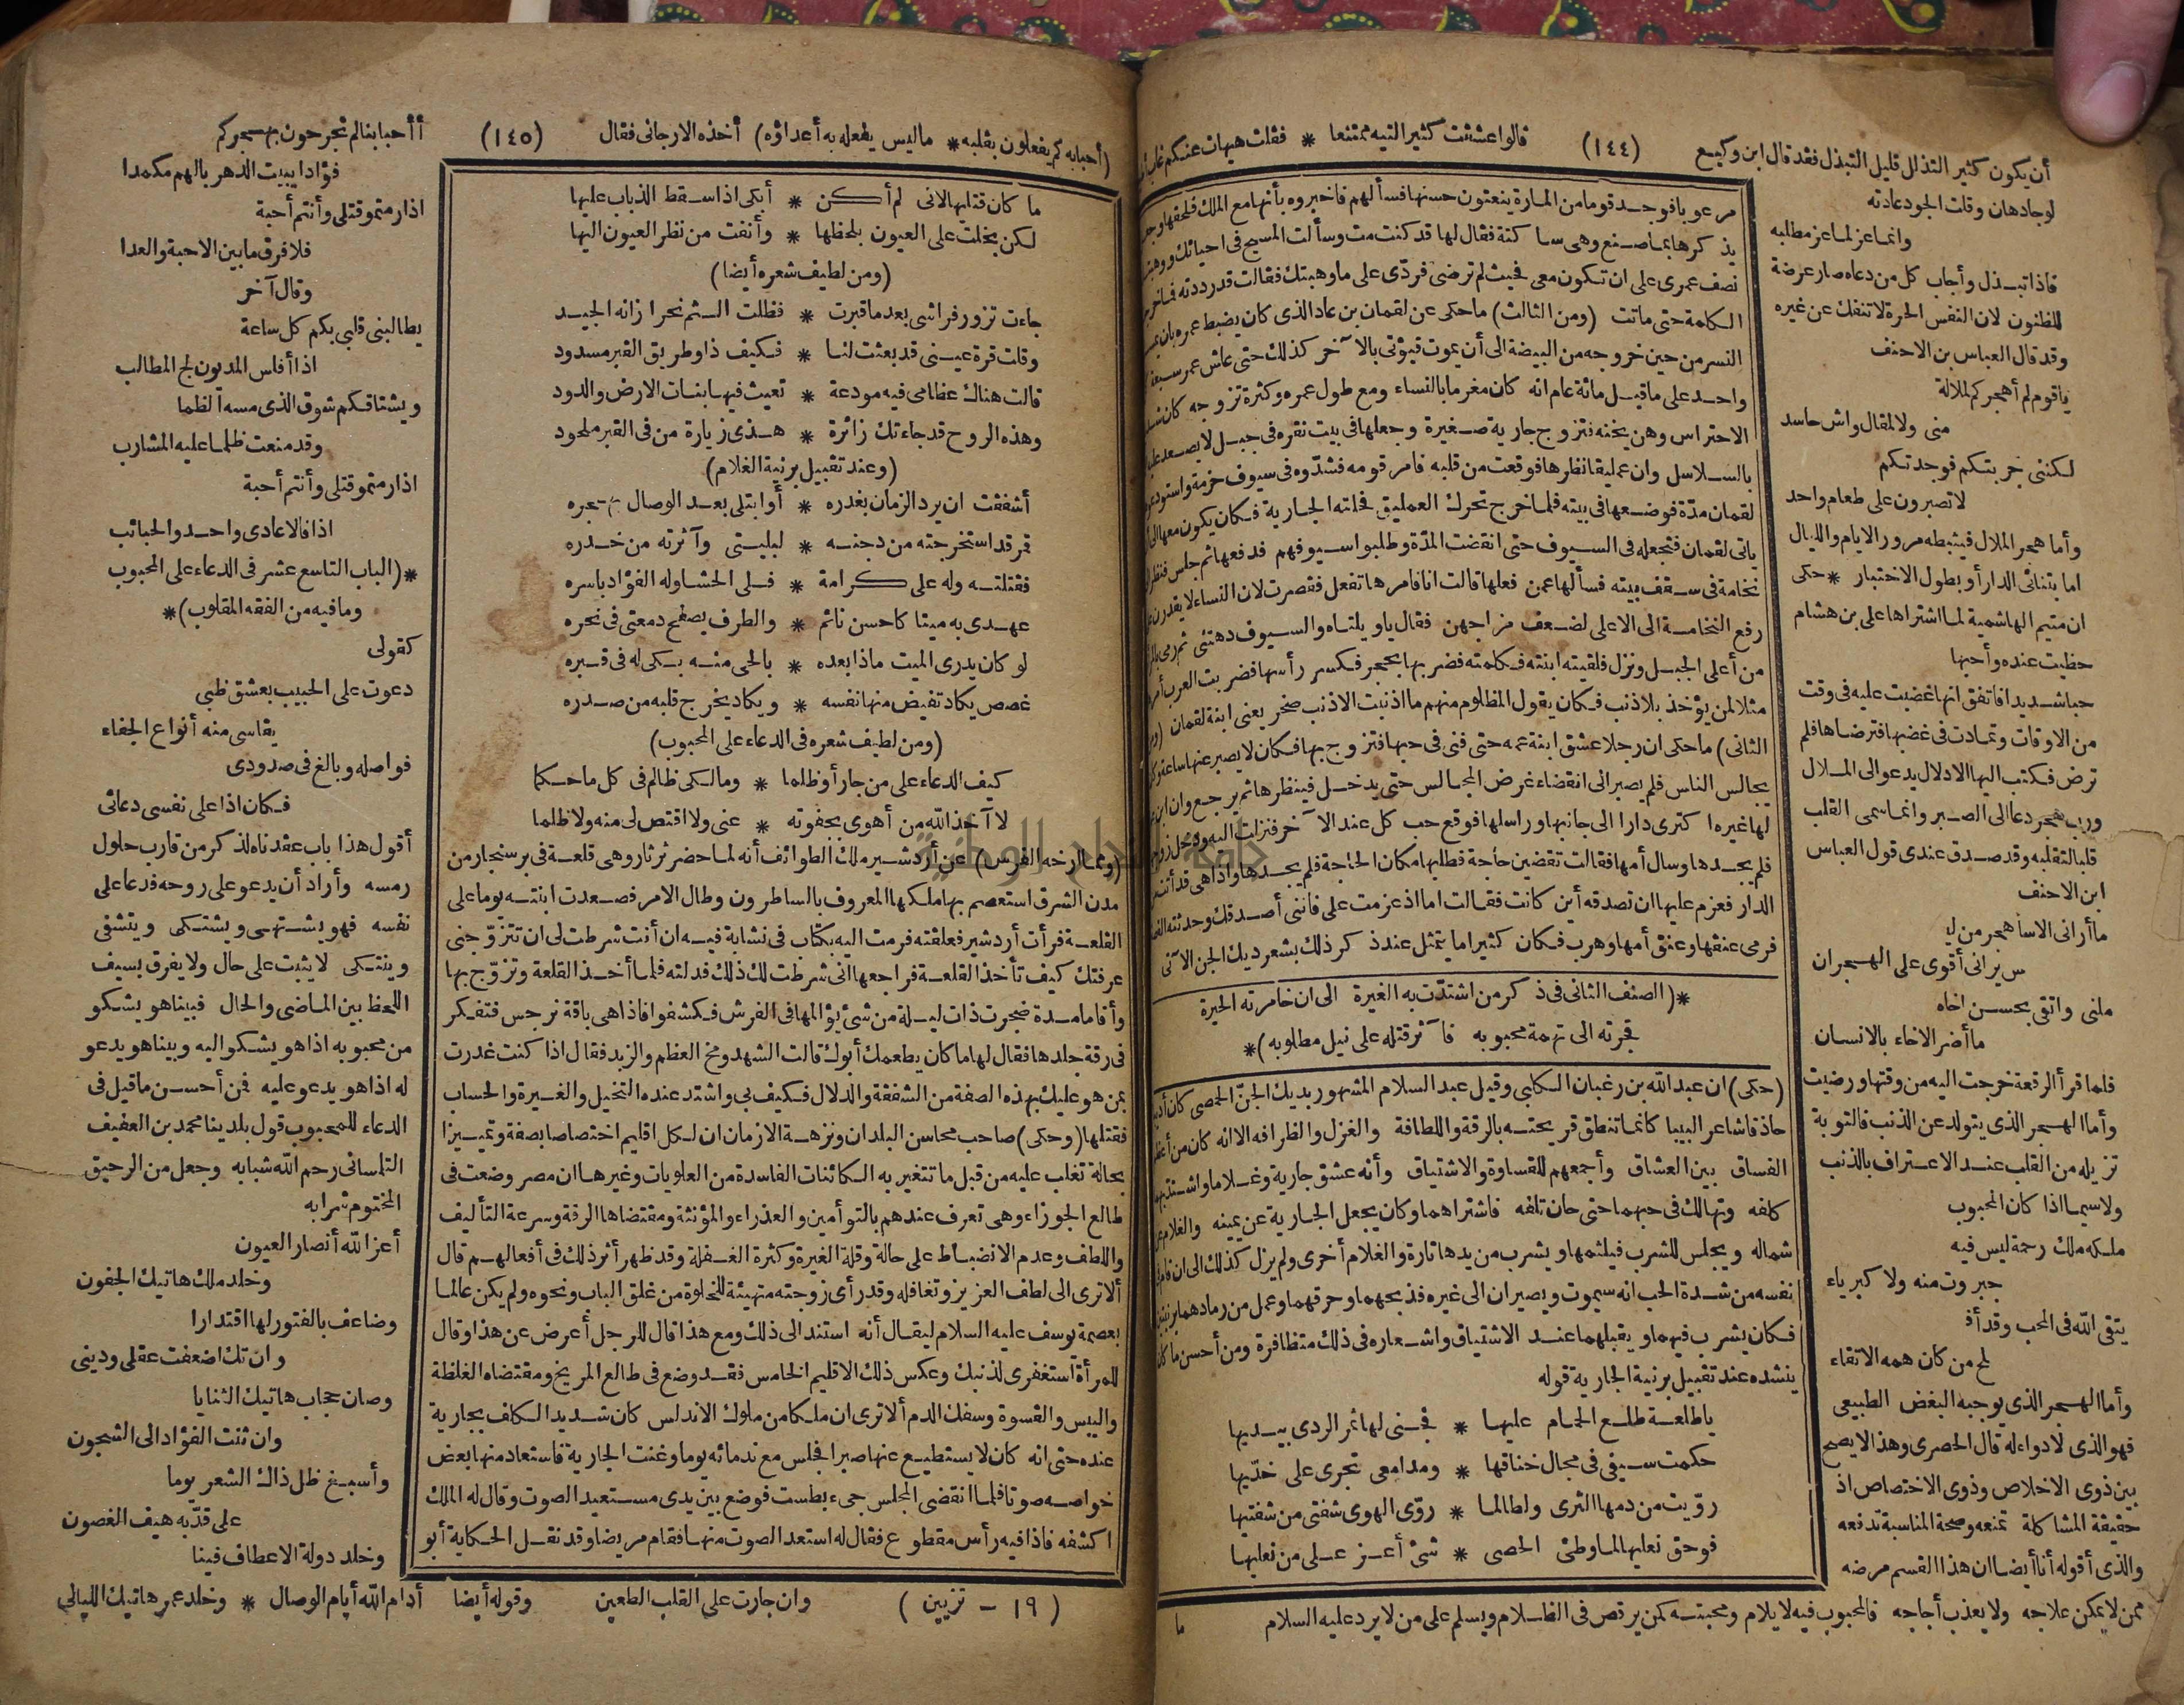 أن يكون كثير التذلل قليل التبذل فقد قال ابن وكيع (١٤٤) قالوا عشقت كثير التيه ممتنعا * فقلت هيهات عنكم
لوجادهان وقلت الجود عادته
وانما عز لما عز مطلبه
فاذا تبذل وأجاب كل من دعاه صار عرضة
للظنون لان النفس الحرة لا تنفك عن غيره
وقد قال العباس بن الاحنف
ياقوم لم أهجركم لملالة
منى ولا لمقال واش حاسد
لكننى جربتكم فوجدتكم
لا تصبرون على طعام واحد
وأما هجر الملال فيثبطه مرور الايام والليال
اما بتنائى الدار أو بطول الاختبار * حكى
ان متيم الهاشمية لما اشتراها على بن هشام
حظيت عنده وأحبها
حبا شديدا فاتفق انها غضبت عليه فى وقت
من الاوقات وتمادت فى غضبها فترضاها فلم
ترض فكتب اليها الادلال يدعو الى الملال
ورب هجر دعا الى الصبر وانما سمى القلب
قلبا لتقلبه وقد صدق عندى قول العباس
ابن الاحنف
ما أرانى الا سأهجر من لي
س يرانى أقوى على الهجران
ملنى واثقى بحسن اخاه
ما أضر الاخاء بالانسان
فلما قرأ الرقعة خرجت اليه من وقتها ورضيت
وأما الهجر الذى يتولد عن الذنب فالتوبة
تزيله من القلب عند الاعتراف بالذنب
ولا سيما اذا كان المحبوب
ملكه ملك رحمة ليس فيه
جبروت منه ولا كبرياء
يتقى الله فى المحب وقد أف
لح من كان همه الاتقاء
وأما الهجر الذى يوجبه البغض الطبيعى
فهو الذى لا دواء له قال الحصرى وهذا لا يصح
بين ذوى الاخلاص وذوى الاختصاص اذ
حقيقة المشاكلة تمنعه وصحة المناسبة تدفعه
والذى أقوله أنا أيضا ان هذا القسم مرضه
ممن لا يمكن علاجه ولا يعذب أجاجه فالمحبوب فيه لا يلام ومحبته كمن يرقص فى الظلام ويسلم على من لا يرد عليه السلام ما
مر عوبا فوجد قوما من المارة ينعتون حسنها فسألهم فاخبروه بأنها مع الملك فلحقها
يذكرها بما صنع وهى ساكتة فقال لها قد كنت مت وسألت المسيح فى احيائك
نصف عمرى على ان تكون معى فحيث لم ترضى فردى على ما وهبتك فقالت قد رددته
الكلمة حتى ماتت (ومن الثالث) ما حكى عن لقمان بن عاد الذى كان يضبط عمره
النسر من حين خروجه من البيضة الى أن يموت فيؤتى بالآخر كذلك حتى عاش عمر سبعة
واحد على ما قيل مائة عام انه كان مغرما بالنساء ومع طول عمره وكثرة تزوجه كان
الاحتراس وهن يخنه فتزوج جارية صغيرة وجعلها فى بيت نقره فى جبل لا يصعد
بالسلاسل وان عمليقا نظرها فوقعت من قلبه فامر قومه فشدوه فى سيوف حزمة
لقمان مدة فوضعها فى بيته فلما خرج تحرك العمليق فحلته الجارية فكان يكون معها
ياتى لقمان فتجعله فى السيوف حتى انقضت المدة وطلبوا سيوفهم فدفعها ثم جلس
نخامة فى سقف بيته فسألها عمن فعلها قالت انا فامرها تفعل فقصرت لان النساء
رفع النخامة الى الاعلى لضعف مزاجهن فقال ياويلتاه والسيوف دهتنى ثم رمى
من أعلى الجبل ونزل فلقيته ابنته فكلمته فضربها بحجر فكسر رأسها فضربت العرب
مثلا لمن يؤخذ بلا ذنب فكان يقول المظلوم منهم ما اذنبت الا ذنب صخر يعنى ابنة لقمان
الثانى) ما حكى ان رجلا عشق ابنة عمه حتى فنى فى حبها فتزوج بها فكان لا يصبر عنها ساعة
يجالس الناس فلم يصبر الى انقضاء غرض المجالس حتى يدخل فينظرها ثم يرجع وان
لها غيره اكترى دارا الى جانبها وراسلها فوقع حب كل عند الآخر فنزلت اليه ودخل
فلم يجدها وسال أمها فقالت تقضين حاجة فطلبها مكان الحاجة فلم يجدها واذا هى قد
الدار فعزم عليها ان تصدقه أين كانت فقالت اما اذ عزمت على فاننى أصدقك وحدثته
فرمى عنقها وعنق أمها وهرب فكان كثيرا ما يتمثل عند ذكر ذلك بشعر ديك الجن الآتى
*(الصنف الثانى فى ذكر من اشتدت به الغيرة الى ان خامرته الحيرة
فجرته الى تهمة محبوبه فآثر قتله على نيل مطلوبه)*
(حكى) ان عبد الله بن رغبان الكلبى وقيل عبد السلام المشهور بديك الجن الحمصى كان
حاذقا شاعرا لبيبا كانما تنطق قريحته بالرقة واللطافة والغزل والظرافه الا انه كان من
الفساق بين العشاق وأجمعهم للقساوة والاشتياق وأنه عشق جارية وغلاما واشتد
كلفه وتهالك فى حبهما حتى حان تلفه فاشتراهما وكان يجعل الجارية عن يمينه والغلام
شماله ويجلس للشرب فيلثمها ويشرب من يدها تارة والغلام أخرى ولم يزل كذلك الى ان
نفسه من شدة الحب انه سيموت ويصيران الى غيره فذبحهما وحرقهما وعمل من رمادهما
فكان يشرب فيهما ويقبلهما عند الاشتياق واشعاره فى ذلك متظافرة ومن أحسن ما
ينشده عند تقبيل برنية الجارية قوله
ياطلعة طلع الحمام عليها * فجنى لها ثمر الردى بيديها
حكمت سيفى فى مجال خناقها * ومدامعى تجرى على خديها
رويت من دمها الثرى ولطالما * روى الهوى شفتى من شفتيها
فوحق نعليها لما وطئ الحصى * شئ أعز على من نعليها
(أحبابه كم يفعلون بقلبه * ما ليس يفعله به أعداؤه) أخذه الارجانى فقال (١٤٥) أأحبابنا لم تجرحون بهجركم
ما كان قتلها لانى لم أكن * أبكى اذا سقط الذباب عليها
لكن بخلت على العيون بلحظها * وأنفت من نظر العيون اليها
(ومن لطيف شعره أيضا)
جاءت تزور فراشى بعد ما قبرت * فظلت الثم نحرا زانه الجيد
وقلت قرة عينى قد بعثت لنا * فكيف ذا وطريق القبر مسدود
قالت هناك عظامى فيه مودعة * تعيث فيها بنات الارض والدود
وهذه الروح قد جاءتك زائرة * هذى زيارة من فى القبر ملحود
(وعند تقبيل برنية الغلام)
أشفقت ان يرد الزمان بغدره * أو ابتلى بعد الوصال بهجره
قمر قد استخرجته من دجنه * لبليتى وآثرته من خدره
فقتلته وله على كرامة * فلى الحشا وله الفؤاد باسره
عهدى به ميتا كاحسن نائم * والطرف يسفح دمعتى فى نحره
لو كان يدرى الميت ماذا بعده * بالحى منه بكى له فى قبره
غصص يكاد تفيض منها نفسه * ويكاد يخرج قلبه من صدره
(ومن لطيف شعره فى الدعاء على المحبوب)
كيف الدعاء على من جار أو ظلما * ومالكى ظالم فى كل ما حكما
لا آخذ الله من أهوى بجفوته * عنى ولا اقتص لى منه ولا ظلما
(ومما أرخه الفرس) عن أردشير ملك الطوائف أنه لما حضر ثرثار وهى قلعة فى بر سنجار من
مدن الشرق استعصم بها ملكها المعروف بالساطرون وطال الامر فصعدت ابنته يوما على
القلعة فرأت أردشير فعلقته فرمت اليه بكتاب فى نشابة فيه ان أنت شرطت لى ان تتزوجنى
عرفتك كيف تأخذ القلعة فراجعها انى شرطت لك ذلك فدلته فلما أخذ القلعة وتزوج بها
وأقاما مدة ضجرت ذات ليلة من شئ يؤلمها فى الفرش فكشفوا فاذا هى باقة نرجس فتفكر
فى رقة جلدها فقال لها ما كان يطعمك أبوك قالت الشهد ومخ العظم والزبد فقال اذا كنت غدرت
بمن هو عليك بهذه الصفة من الشفقة والدلال فكيف بى واشتد عنده التخيل والغيرة والحساب
فقتلها (وحكى) صاحب محاسن البلدان ونزهة الازمان ان لكل اقليم اختصاصا بصفة وتميزا
بحالة تغلب عليه من قبل ما تتغير به الكائنات الفاسدة من العلويات وغيرها ان مصر وضعت فى
طالع الجوزاء وهى تعرف عندهم بالتوأمين والعذراء والمؤنثة ومقتضاها الرقة وسرعة التأليف
واللطف وعدم الانضباط على حالة وقلة الغيرة وكثرة الغفلة وقد ظهر أثر ذلك فى أفعالهم قال
ألا ترى الى لطف العزيز وتغافله وقد رأى زوجته متهيئة للخلوة من غلق الباب ونحوه ولم يكن عالما
بعصمة يوسف عليه السلام ليقال أنه استند الى ذلك ومع هذا قال للرجل أعرض عن هذا وقال
للمرأة استغفرى لذنبك وعكس ذلك الاقليم الخامس فقد وضع فى طالع المريخ ومقتضاه الغلظة
واليبس والقسوة وسفك الدم ألا ترى ان ملكا من ملوك الاندلس كان شديد الكلف بجارية
عنده حتى انه كان لا يستطيع عنها صبرا فجلس مع ندمائه يوما وغنت الجارية فاستعاد منها بعض
خواصه صوتا فلما انقضى المجلس جىء بطست فوضع بين يدى مستعيد الصوت وقال له الملك
اكشفه فاذا فيه رأس مقطوع فقال له استعد الصوت منها فقام مريضا وقد نقل الحكاية أبو
فؤادا يبيت الدهر بالهم مكمدا
اذا رمتمو قتلى وأنتم أحبة
فلا فرق ما بين الاحبة والعدا
وقال آخر
يطالبنى قلبى بكم كل ساعة
اذا أفلس المديون لج المطالب
ويشتاقكم شوق الذى مسه الظما
وقد منعت ظلما عليه المشارب
اذا رمتمو قتلى وأنتم أحبة
اذا فالاعادى واحد والحبائب
*(الباب التاسع عشر فى الدعاء على المحبوب
وما فيه من الفقه المقلوب)*
كقولى
دعوت على الحبيب بعشق ظبى
يقاسى منه أنواع الجفاء
فواصله وبالغ فى صدودى
فكان اذا على نفسى دعائى
أقول هذا باب عقدناه لذكر من قارب حلول
رمسه وأراد أن يدعو على روحه فدعا على
نفسه فهو يشتهى ويشتكى ويتشفى
وينتكى لا يثبت على حال ولا يفرق بسيف
اللحظ بين الماضى والحال فبينا هو يشكو
من محبوبه اذا هو يشكو اليه وبينا هو يدعو
له اذا هو يدعو عليه فمن أحسن ما قيل فى
الدعاء للمحبوب قول بلدينا محمد بن العفيف
التلمسانى رحم الله شبابه وجعل من الرحيق
المختوم شرابه
أعز الله أنصار العيون
وخلد ملك هاتيك الجفون
وضاعف بالفتور لها اقتدارا
وان تك اضعفت عقلى ودينى
وصان حجاب هاتيك الثنايا
وان ثنت الفؤاد الى الشجون
وأسبغ ظل ذاك الشعر يوما
على قد به هيف الغصون
وخلد دولة الاعطاف فينا
وان جارت على القلب الطعين وقوله أيضا أدام الله أيام الوصال * وخلد عمر هاتيك الليالى
(١٩ - تزيين)